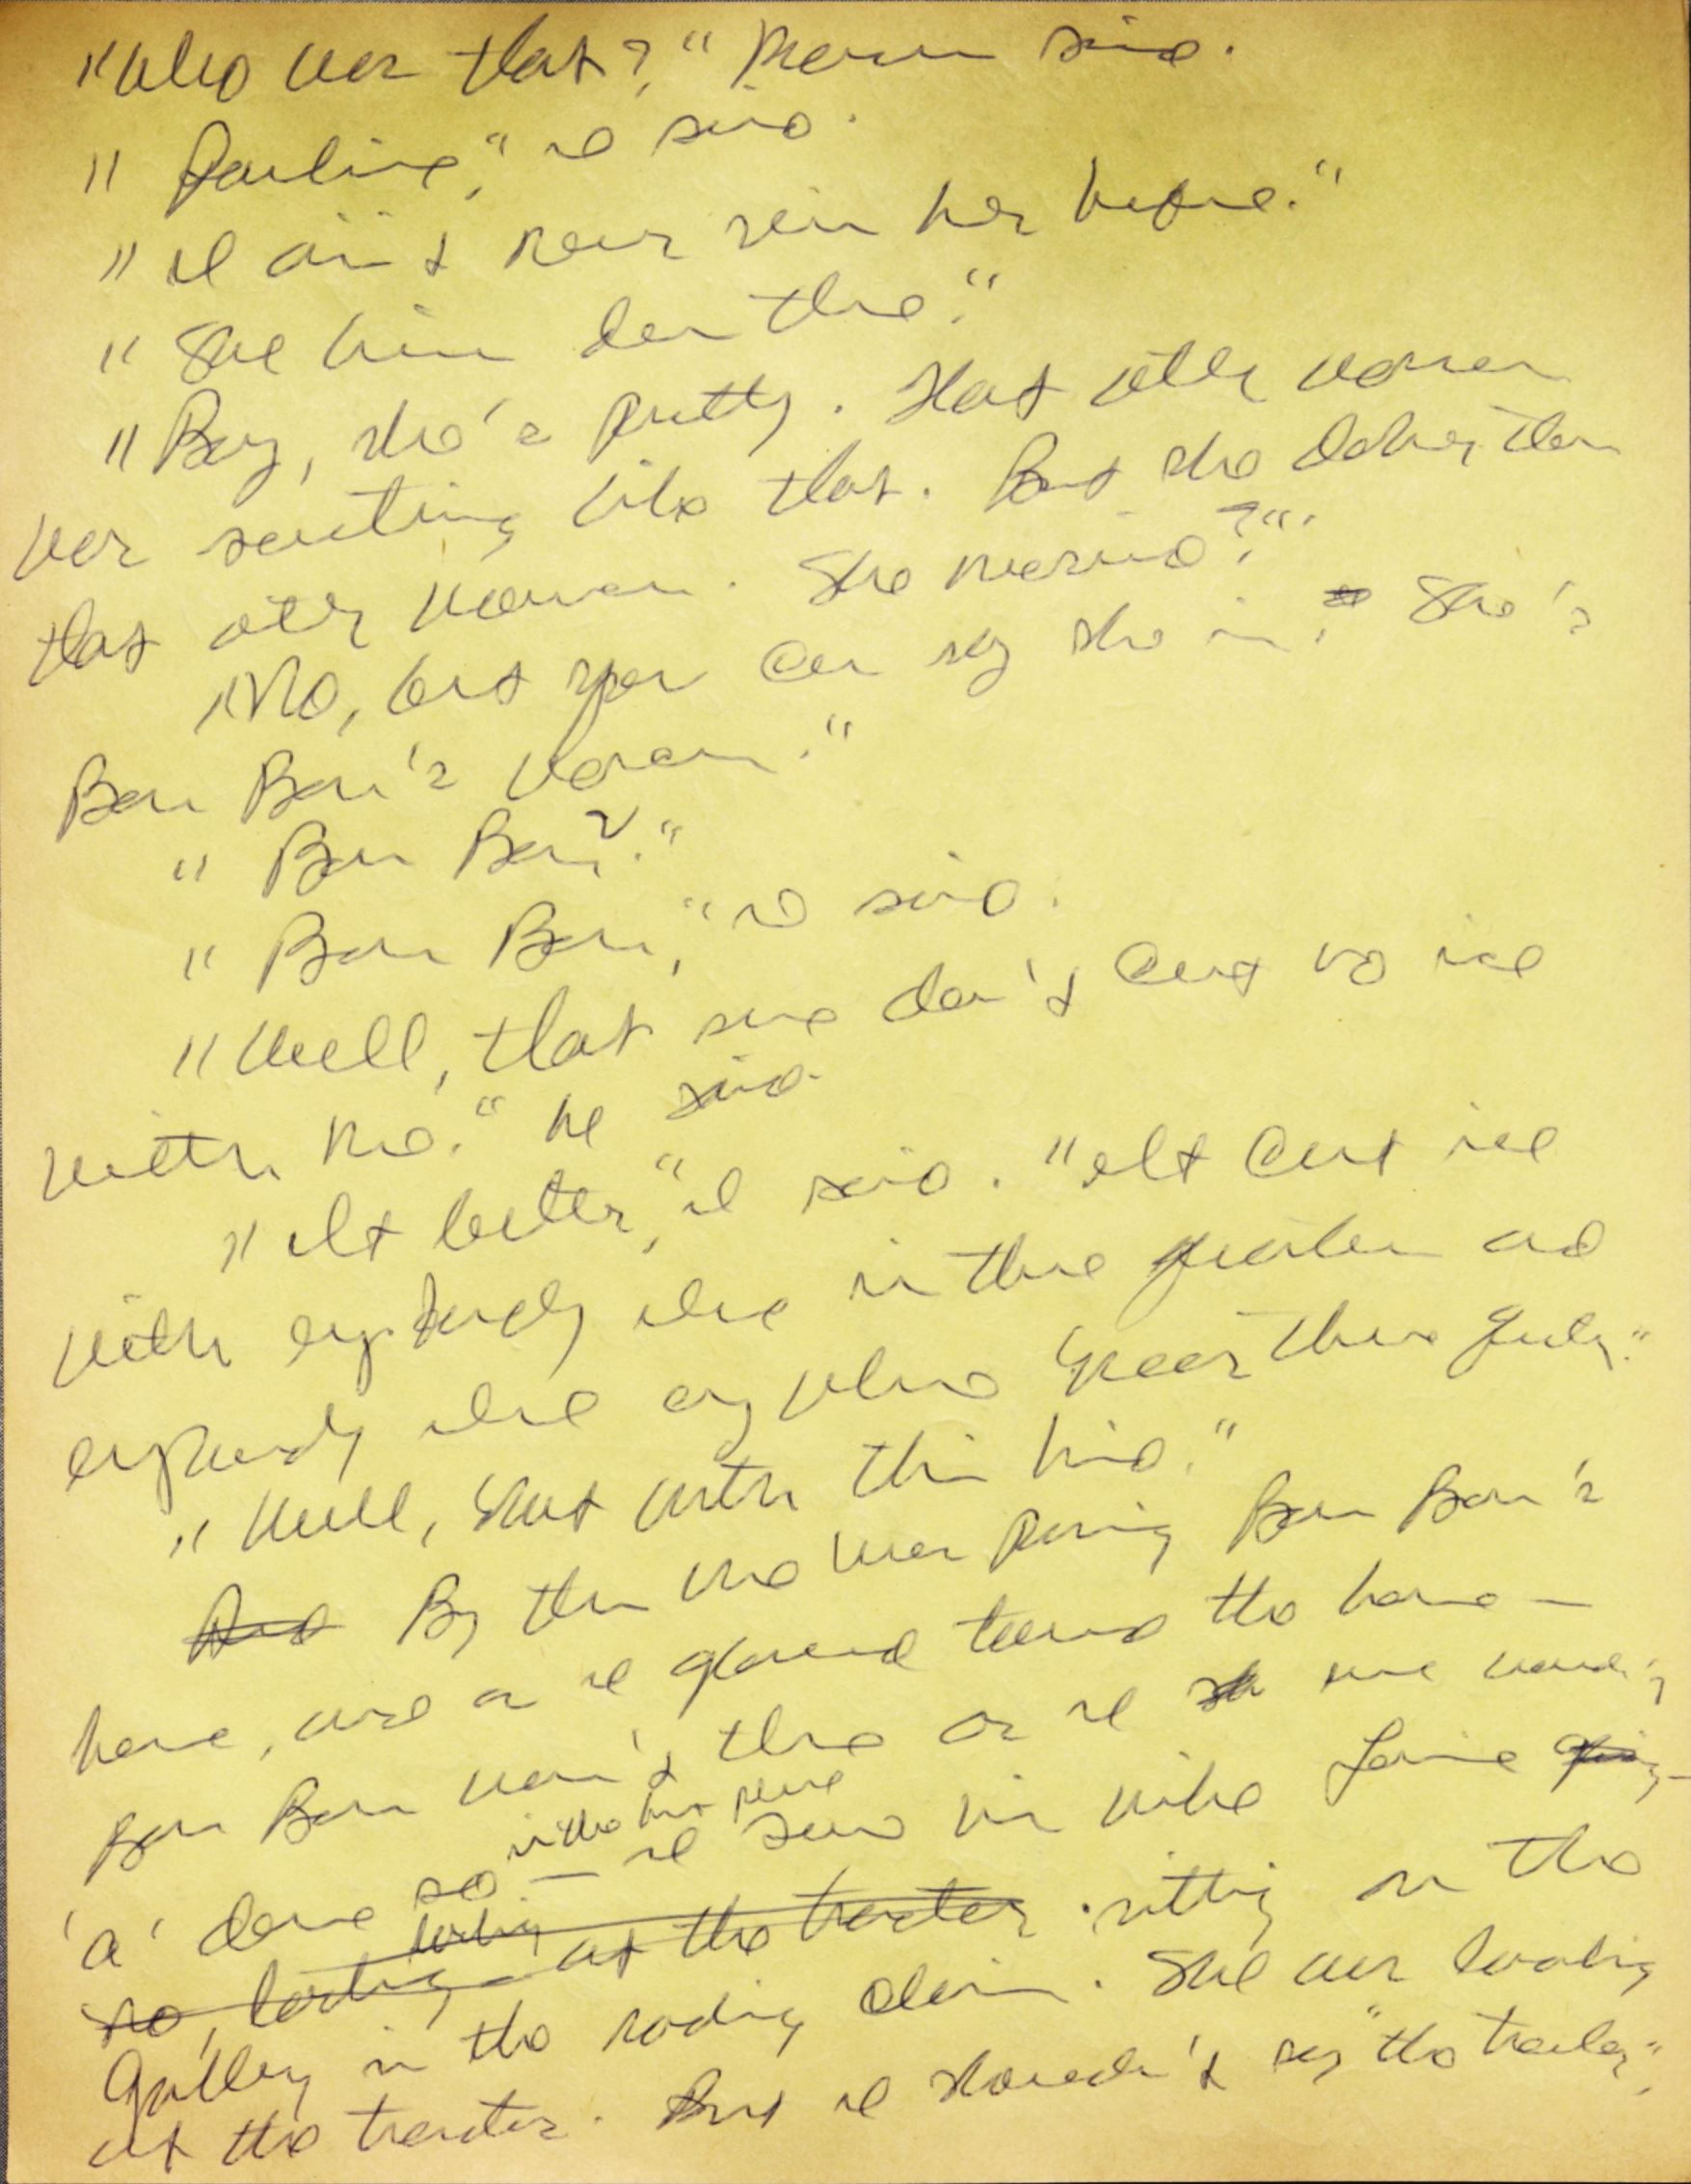 "Who was that?" Marcus said.
"Pauline," I said.
"I ain't never seen her before."
"She been there."
"Boy, she's pretty. That other woman
was something like that. But she darker than
that other woman. She married?"
"No, but you can say she is. She's
Bon Bon's woman."
"Bon Bon?"
"Bon Bon," I said.
"Well, that sure don't cut no ice
with me." he said.
"It better," I said. "It cut ice
with everybody else in the quarter and
everybody else anywhere near
"Well, not with this kid."
By then we was passing Bon Bon's
house, and as I glanced toward the house —
Bon Bon wasn't there or I sure
'a' done so — I saw his wife Louise
in the first place
looking
so, looking at the tractor. sitting on the
gallery in the rocking chair. She was looking
at the tractor. But I shouldn't say "the tractor,"